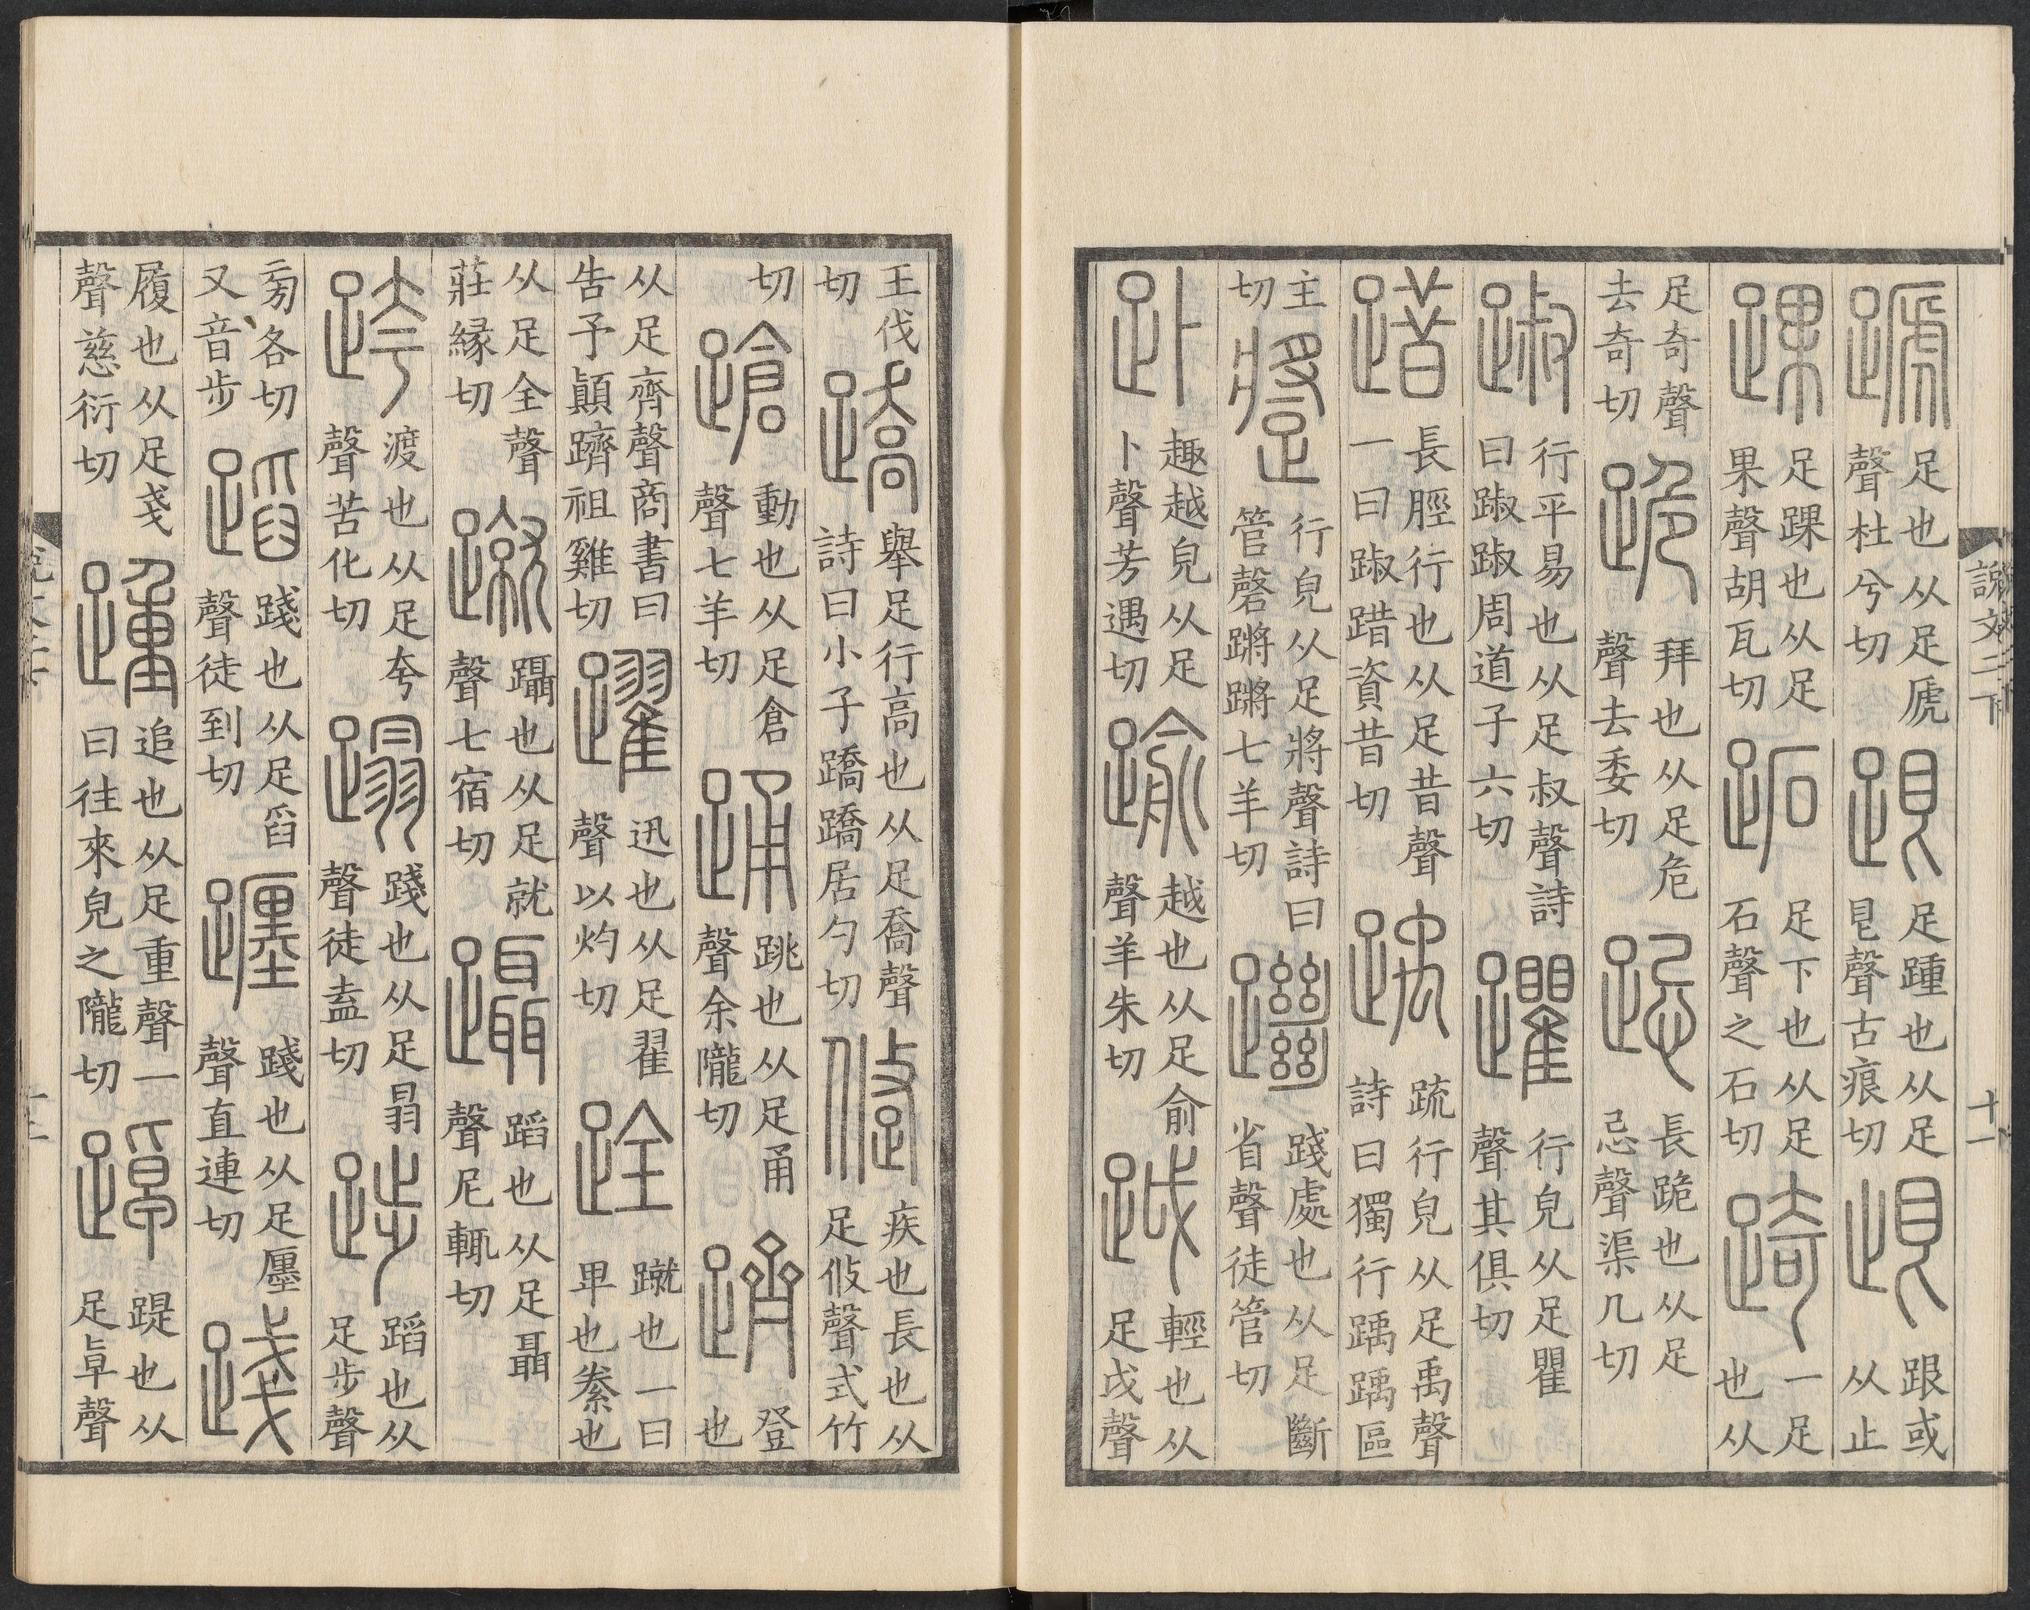 說文二下 十一
蹏足也从足虒聲杜兮切跟足踵也从足皀聲古痕切跟或从止
踝足踝也从足果聲胡瓦切跖足下也从足石聲之石切踦一足也从
足奇聲去奇切跪拜也从足危聲去委切跽長跪也从足忌聲渠几切
踧行平易也从足叔聲詩曰踧踧周道子六切躣行皃从足瞿聲其俱切
踖長脛行也从足昔聲一曰踧踖資昔切踽疏行皃从足禹聲詩曰獨行踽踽區
主切蹡行皃从足將聲詩曰管磬蹡蹡七羊切躖踐處也从足斷省聲徒管切
趣越皃从足卜聲芳遇切踰越也从足俞聲羊朱切輕也从足戉聲
王伐切蹻舉足行高也从足喬聲詩曰小子蹻蹻居勺切跾疾也長也从足攸聲式竹
切蹌動也从足倉聲七羊切踊跳也从足甬聲余隴切躋登也
从足齊聲商書曰告予顚躋祖雞切躍迅也从足翟聲以灼切跧蹴也一曰卑也絭也
从足全聲莊緣切蹴躡也从足就聲七宿切躡蹈也从足聶聲尼輒切
跨渡也从足夸聲苦化切蹋踐也从足𦐇聲徒盍切蹈也从足步聲
旁各切又音步蹈踐也从足舀聲徒到切躔踐也从足廛聲直連切踐
履也从足戔聲慈衍切踵追也从足重聲一曰往來皃之隴切踔踶也从足卓聲